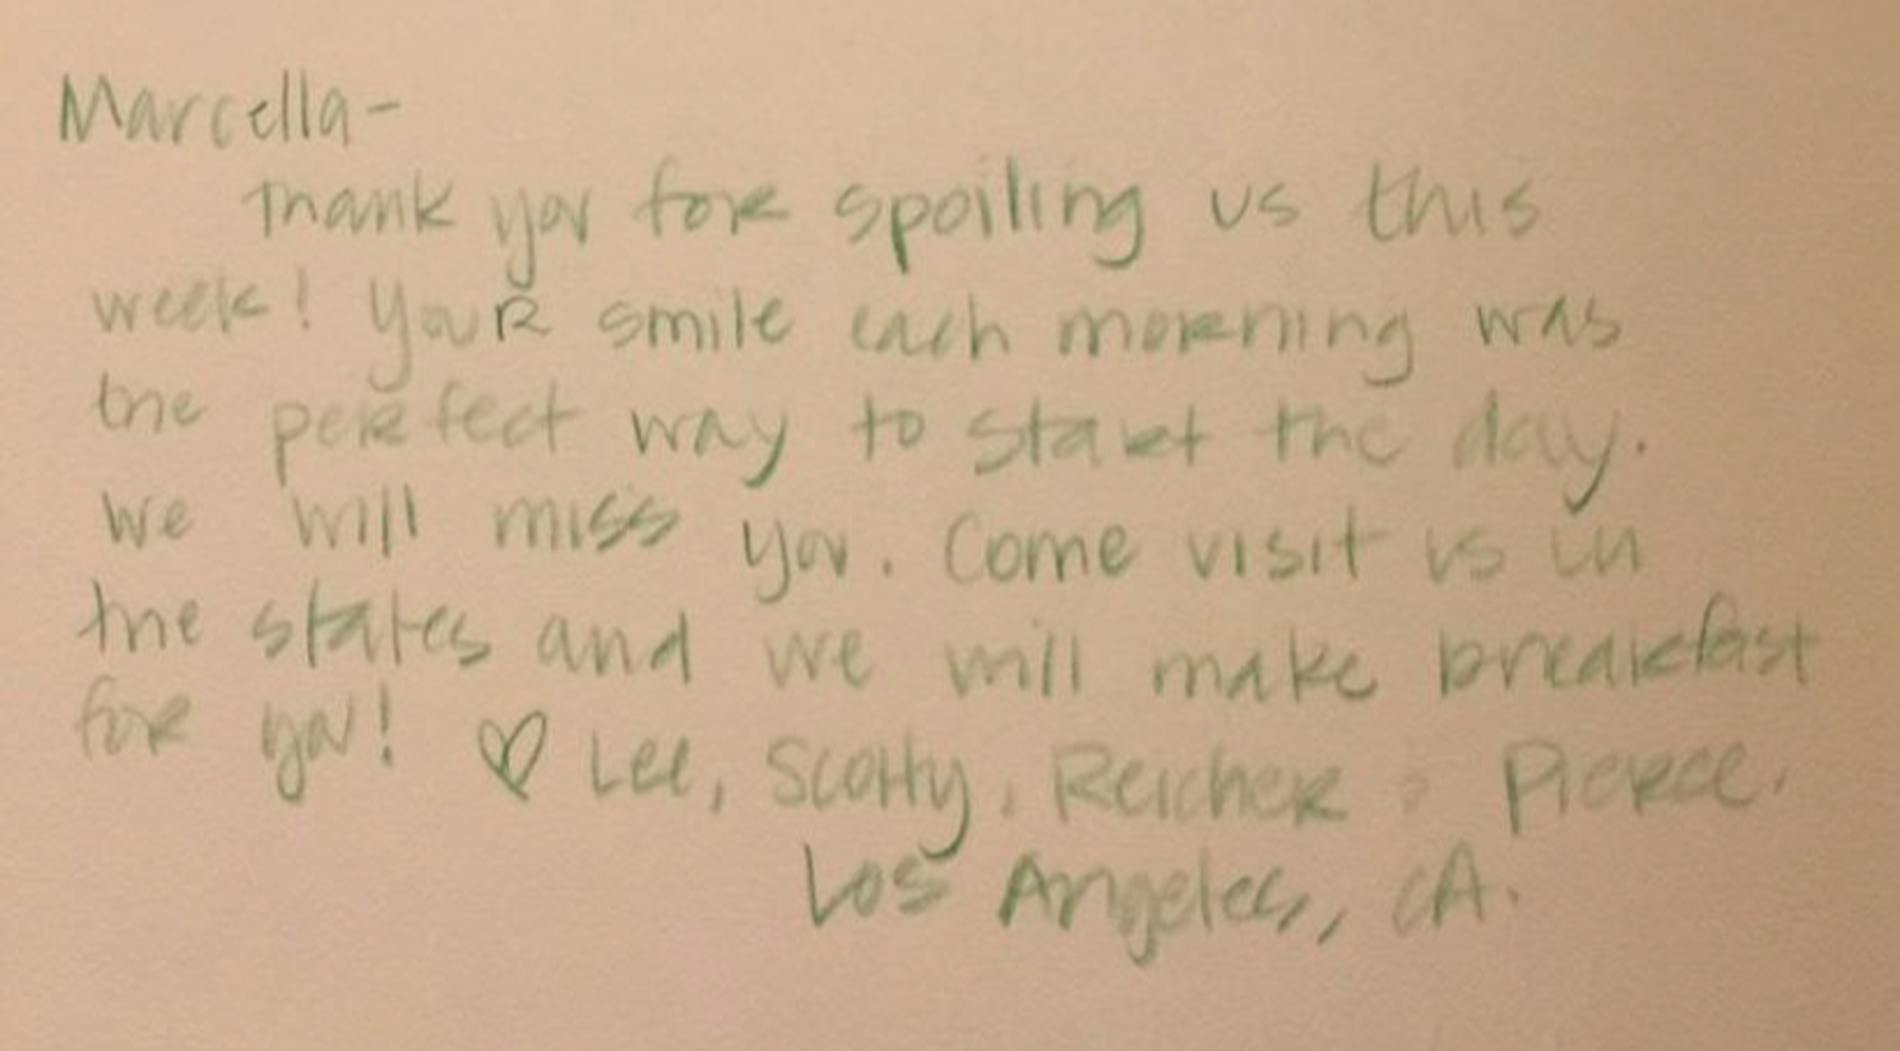 Marcella-
Thank you for spoiling us this
week! Your smile each morning was
the perfect way to start the day.
We will miss you. Come visit us in
the states and we will make breakfast
for you! ♡ Lee, Scotty, Reicher, Pierce.
Los Angeles, CA.